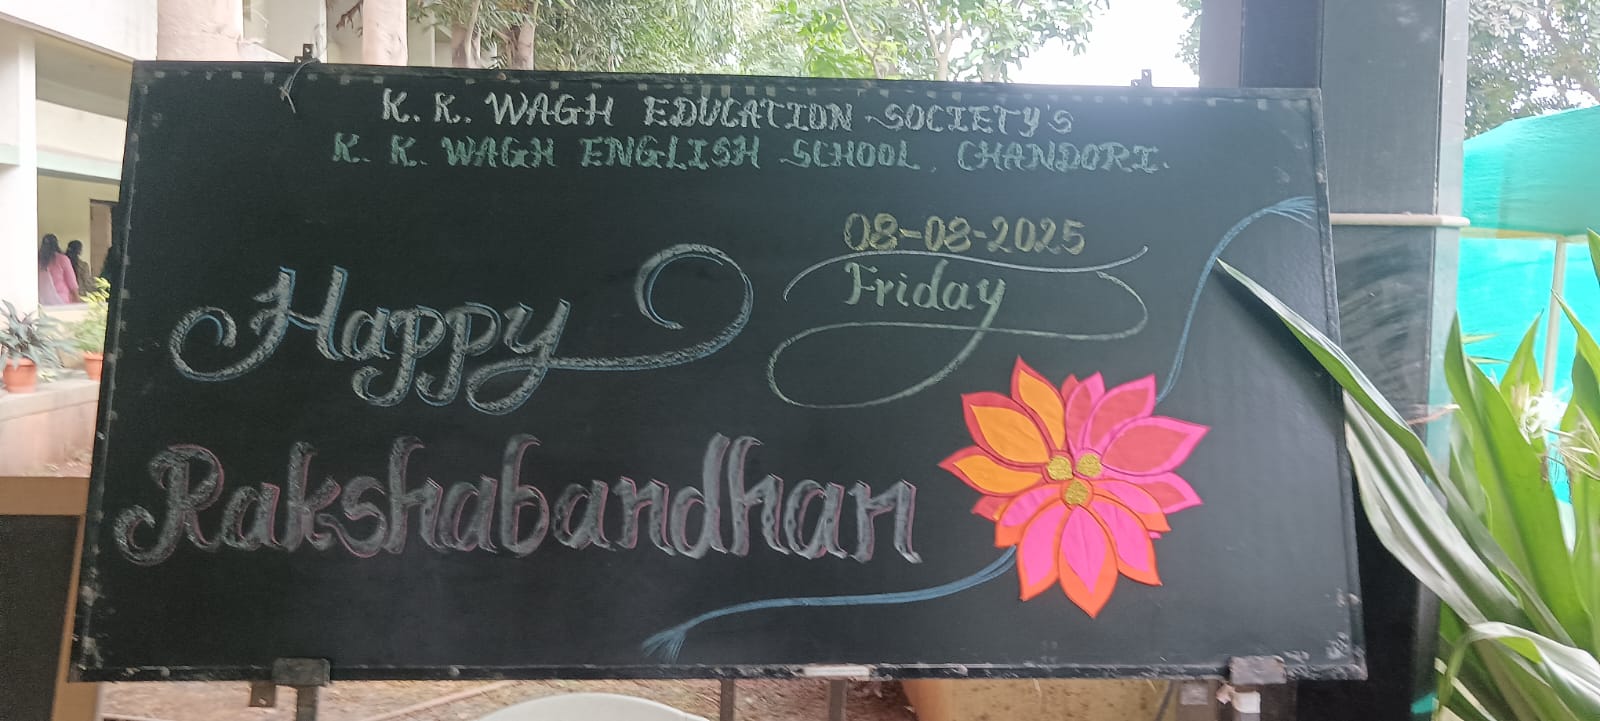 K. K. WAGH EDUCATION SOCIETY'S
K. K. WAGH ENGLISH SCHOOL, CHANDORI.
08-08-2025
Friday
Happy
Rakshabandhan